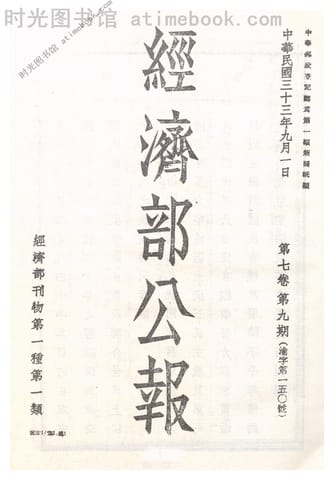 时光图书馆 atimebook.com
中華郵政登記認為第一類新聞紙類
中華民國三十三年九月一日
第七卷第九期(渝字第一五〇號)
經濟部公報
經濟部刊物第一種第一類